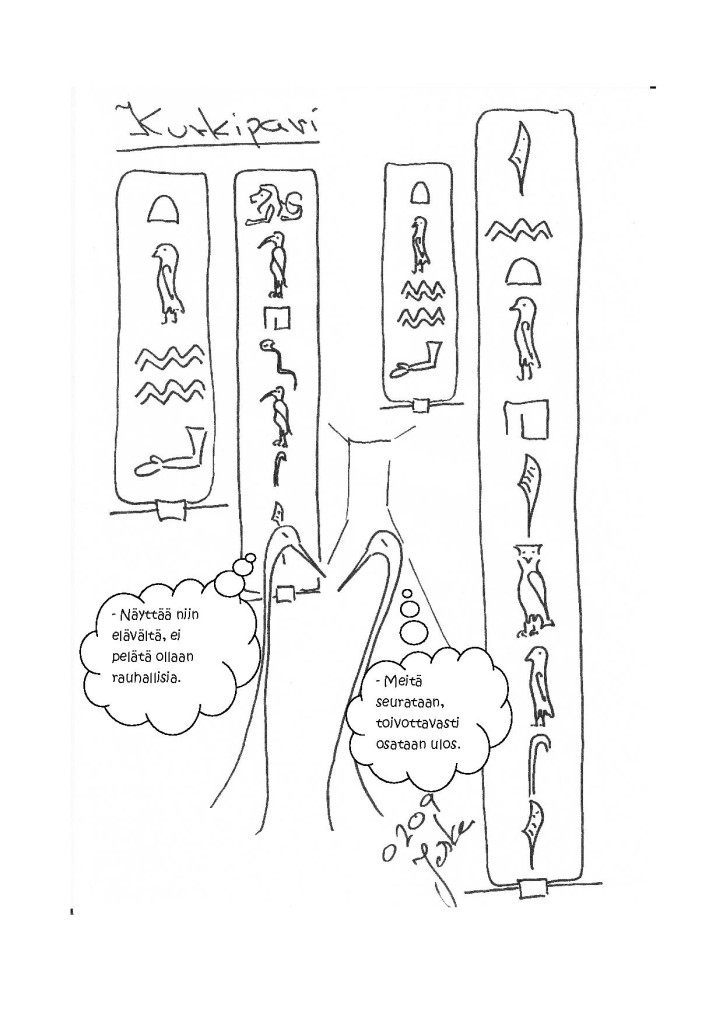 Kurkipari
- Näyttää niin
elävältä, ei
pelätä ollaan
rauhallisia.
- Meitä
seurataan,
toivottavasti
osataan ulos.